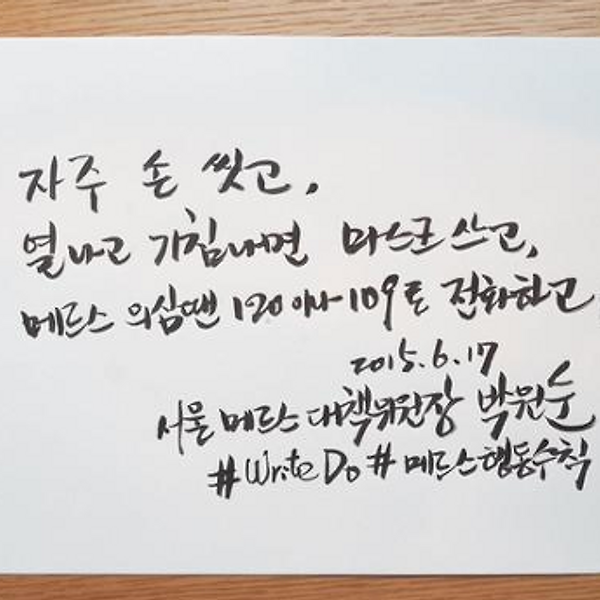 자주 손 씻고,
열나고 기침나면 마스크 쓰고,
메르스 의심땐 120이나 109로 전화하고,
2015.6.17
서울 메르스 대책위원장 박원순
#Write Do # 메르스행동수칙